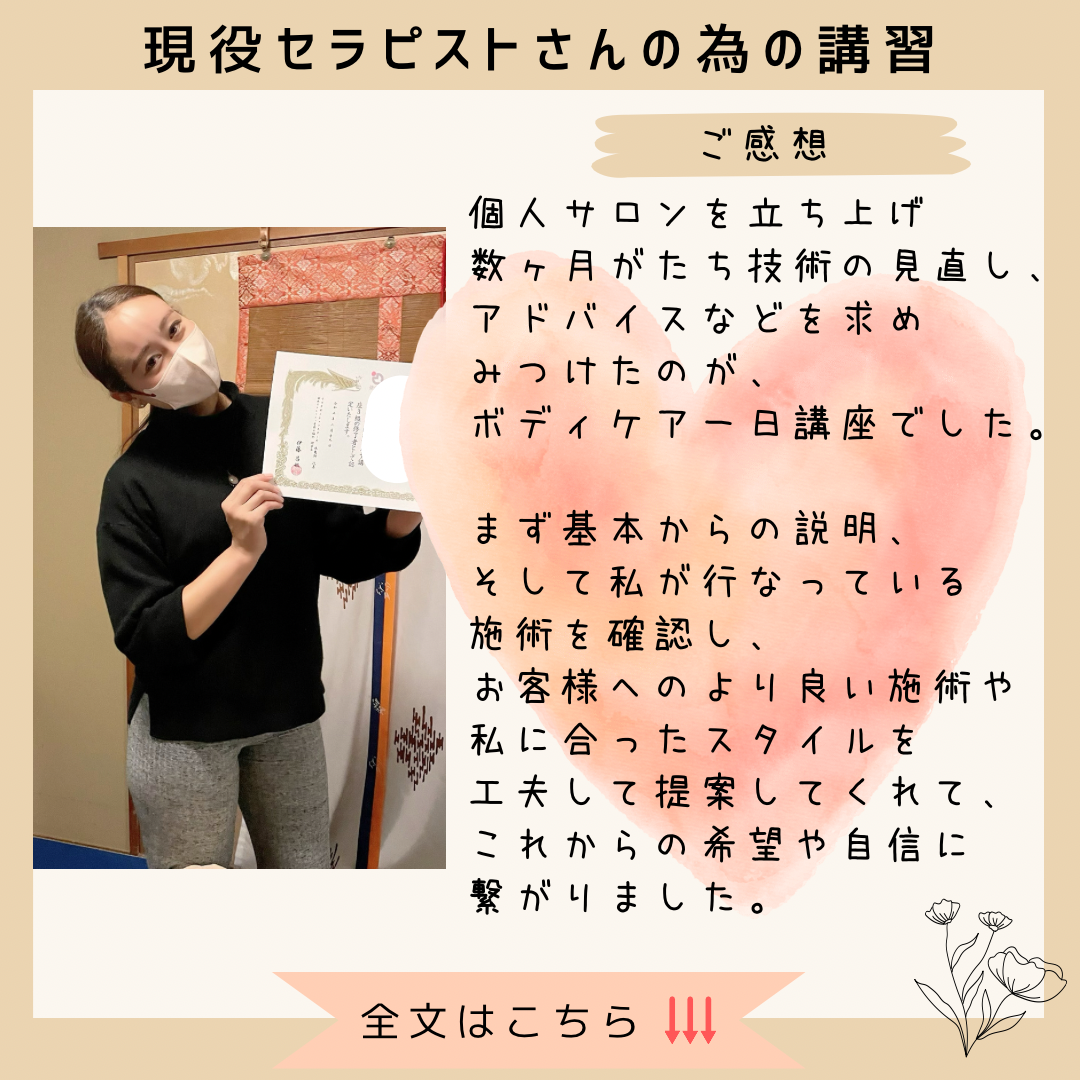 現役セラピストさんの為の講習
ご感想
個人サロンを立ち上げ
数ヶ月がたち技術の見直し、
アドバイスなどを求め
みつけたのが、
ボディケア一日講座でした。
まず基本からの説明、
そして私が行なっている
施術を確認し、
お客様へのより良い施術や
私に合ったスタイルを
工夫して提案してくれて、
これからの希望や自信に
繋がりました。
全文はこちら